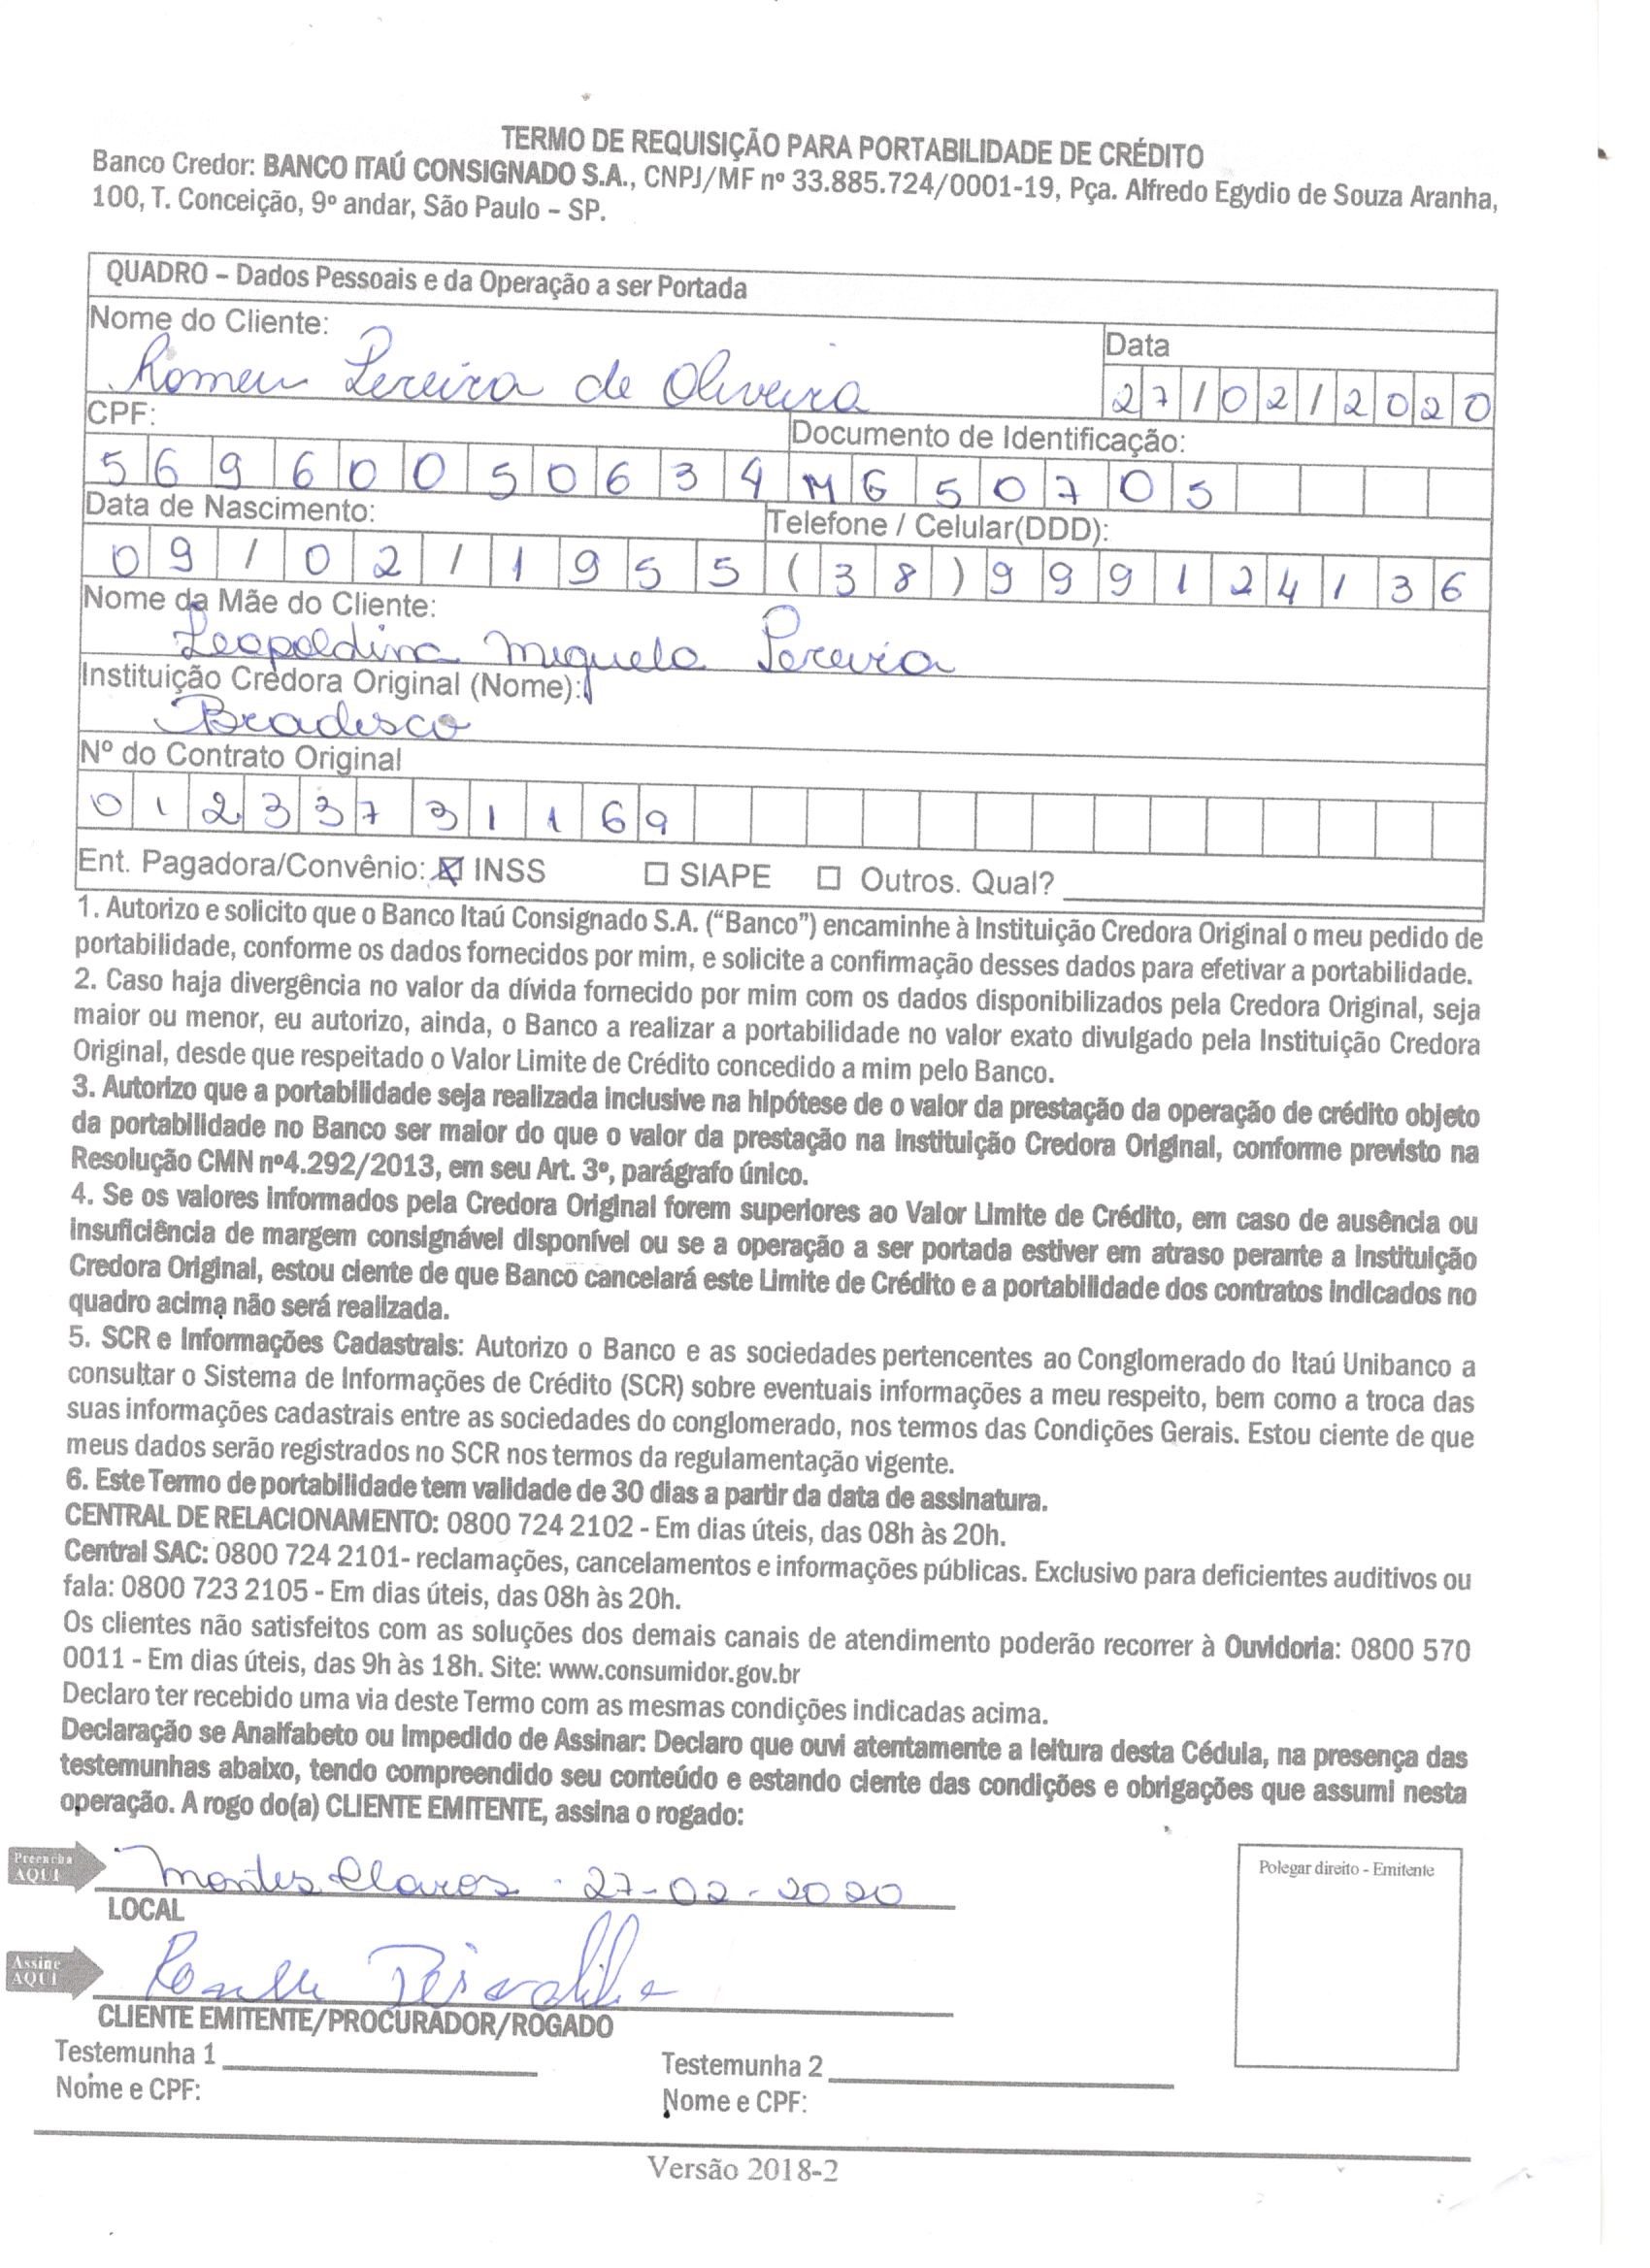 TERMO DE REQUISIÇÃO PARA PORTABILIDADE DE CRÉDITO
Banco Credor: BANCO ITAÚ CONSIGNADO S.A., CNPJ/MF nº 33.885.724/0001-19, Pça. Alfredo Egydio de Souza Aranha,
100, T. Conceição, 9º andar, São Paulo – SP.
QUADRO – Dados Pessoais e da Operação a ser Portada
Nome do Cliente:
Romeu Pereira de Oliveira
Data
27/02/2020
CPF:
56960050634
Documento de Identificação:
MG50705
Data de Nascimento:
09/02/1955
Telefone / Celular(DDD):
(38)999124136
Nome da Mãe do Cliente:
Leopoldina Miquela Pereira
Instituição Credora Original (Nome):
Bradesco
Nº do Contrato Original
01233731169
Ent. Pagadora/Convênio: ☒ INSS ☐ SIAPE ☐ Outros. Qual?
1. Autorizo e solicito que o Banco Itaú Consignado S.A. (“Banco”) encaminhe à Instituição Credora Original o meu pedido de
portabilidade, conforme os dados fornecidos por mim, e solicite a confirmação desses dados para efetivar a portabilidade.
2. Caso haja divergência no valor da dívida fornecido por mim com os dados disponibilizados pela Credora Original, seja
maior ou menor, eu autorizo, ainda, o Banco a realizar a portabilidade no valor exato divulgado pela Instituição Credora
Original, desde que respeitado o Valor Limite de Crédito concedido a mim pelo Banco.
3. Autorizo que a portabilidade seja realizada inclusive na hipótese de o valor da prestação da operação de crédito objeto
da portabilidade no Banco ser maior do que o valor da prestação na Instituição Credora Original, conforme previsto na
Resolução CMN nº4.292/2013, em seu Art. 3º, parágrafo único.
4. Se os valores informados pela Credora Original forem superiores ao Valor Limite de Crédito, em caso de ausência ou
insuficiência de margem consignável disponível ou se a operação a ser portada estiver em atraso perante a Instituição
Credora Original, estou ciente de que Banco cancelará este Limite de Crédito e a portabilidade dos contratos indicados no
quadro acima não será realizada.
5. SCR e Informações Cadastrais: Autorizo o Banco e as sociedades pertencentes ao Conglomerado do Itaú Unibanco a
consultar o Sistema de Informações de Crédito (SCR) sobre eventuais informações a meu respeito, bem como a troca das
suas informações cadastrais entre as sociedades do conglomerado, nos termos das Condições Gerais. Estou ciente de que
meus dados serão registrados no SCR nos termos da regulamentação vigente.
6. Este Termo de portabilidade tem validade de 30 dias a partir da data de assinatura.
CENTRAL DE RELACIONAMENTO: 0800 724 2102 - Em dias úteis, das 08h às 20h.
Central SAC: 0800 724 2101- reclamações, cancelamentos e informações públicas. Exclusivo para deficientes auditivos ou
fala: 0800 723 2105 - Em dias úteis, das 08h às 20h.
Os clientes não satisfeitos com as soluções dos demais canais de atendimento poderão recorrer à Ouvidoria: 0800 570
0011 - Em dias úteis, das 9h às 18h. Site: www.consumidor.gov.br
Declaro ter recebido uma via deste Termo com as mesmas condições indicadas acima.
Declaração se Analfabeto ou Impedido de Assinar: Declaro que ouvi atentamente a leitura desta Cédula, na presença das
testemunhas abaixo, tendo compreendido seu conteúdo e estando ciente das condições e obrigações que assumi nesta
operação. A rogo do(a) CLIENTE EMITENTE, assina o rogado:
Preencha
AQUI
Montes Claros . 27-02-2020
LOCAL
Polegar direito - Emitente
Assine
AQUI
CLIENTE EMITENTE/PROCURADOR/ROGADO
Testemunha 1
Testemunha 2
Nome e CPF:
Nome e CPF:
Versão 2018-2